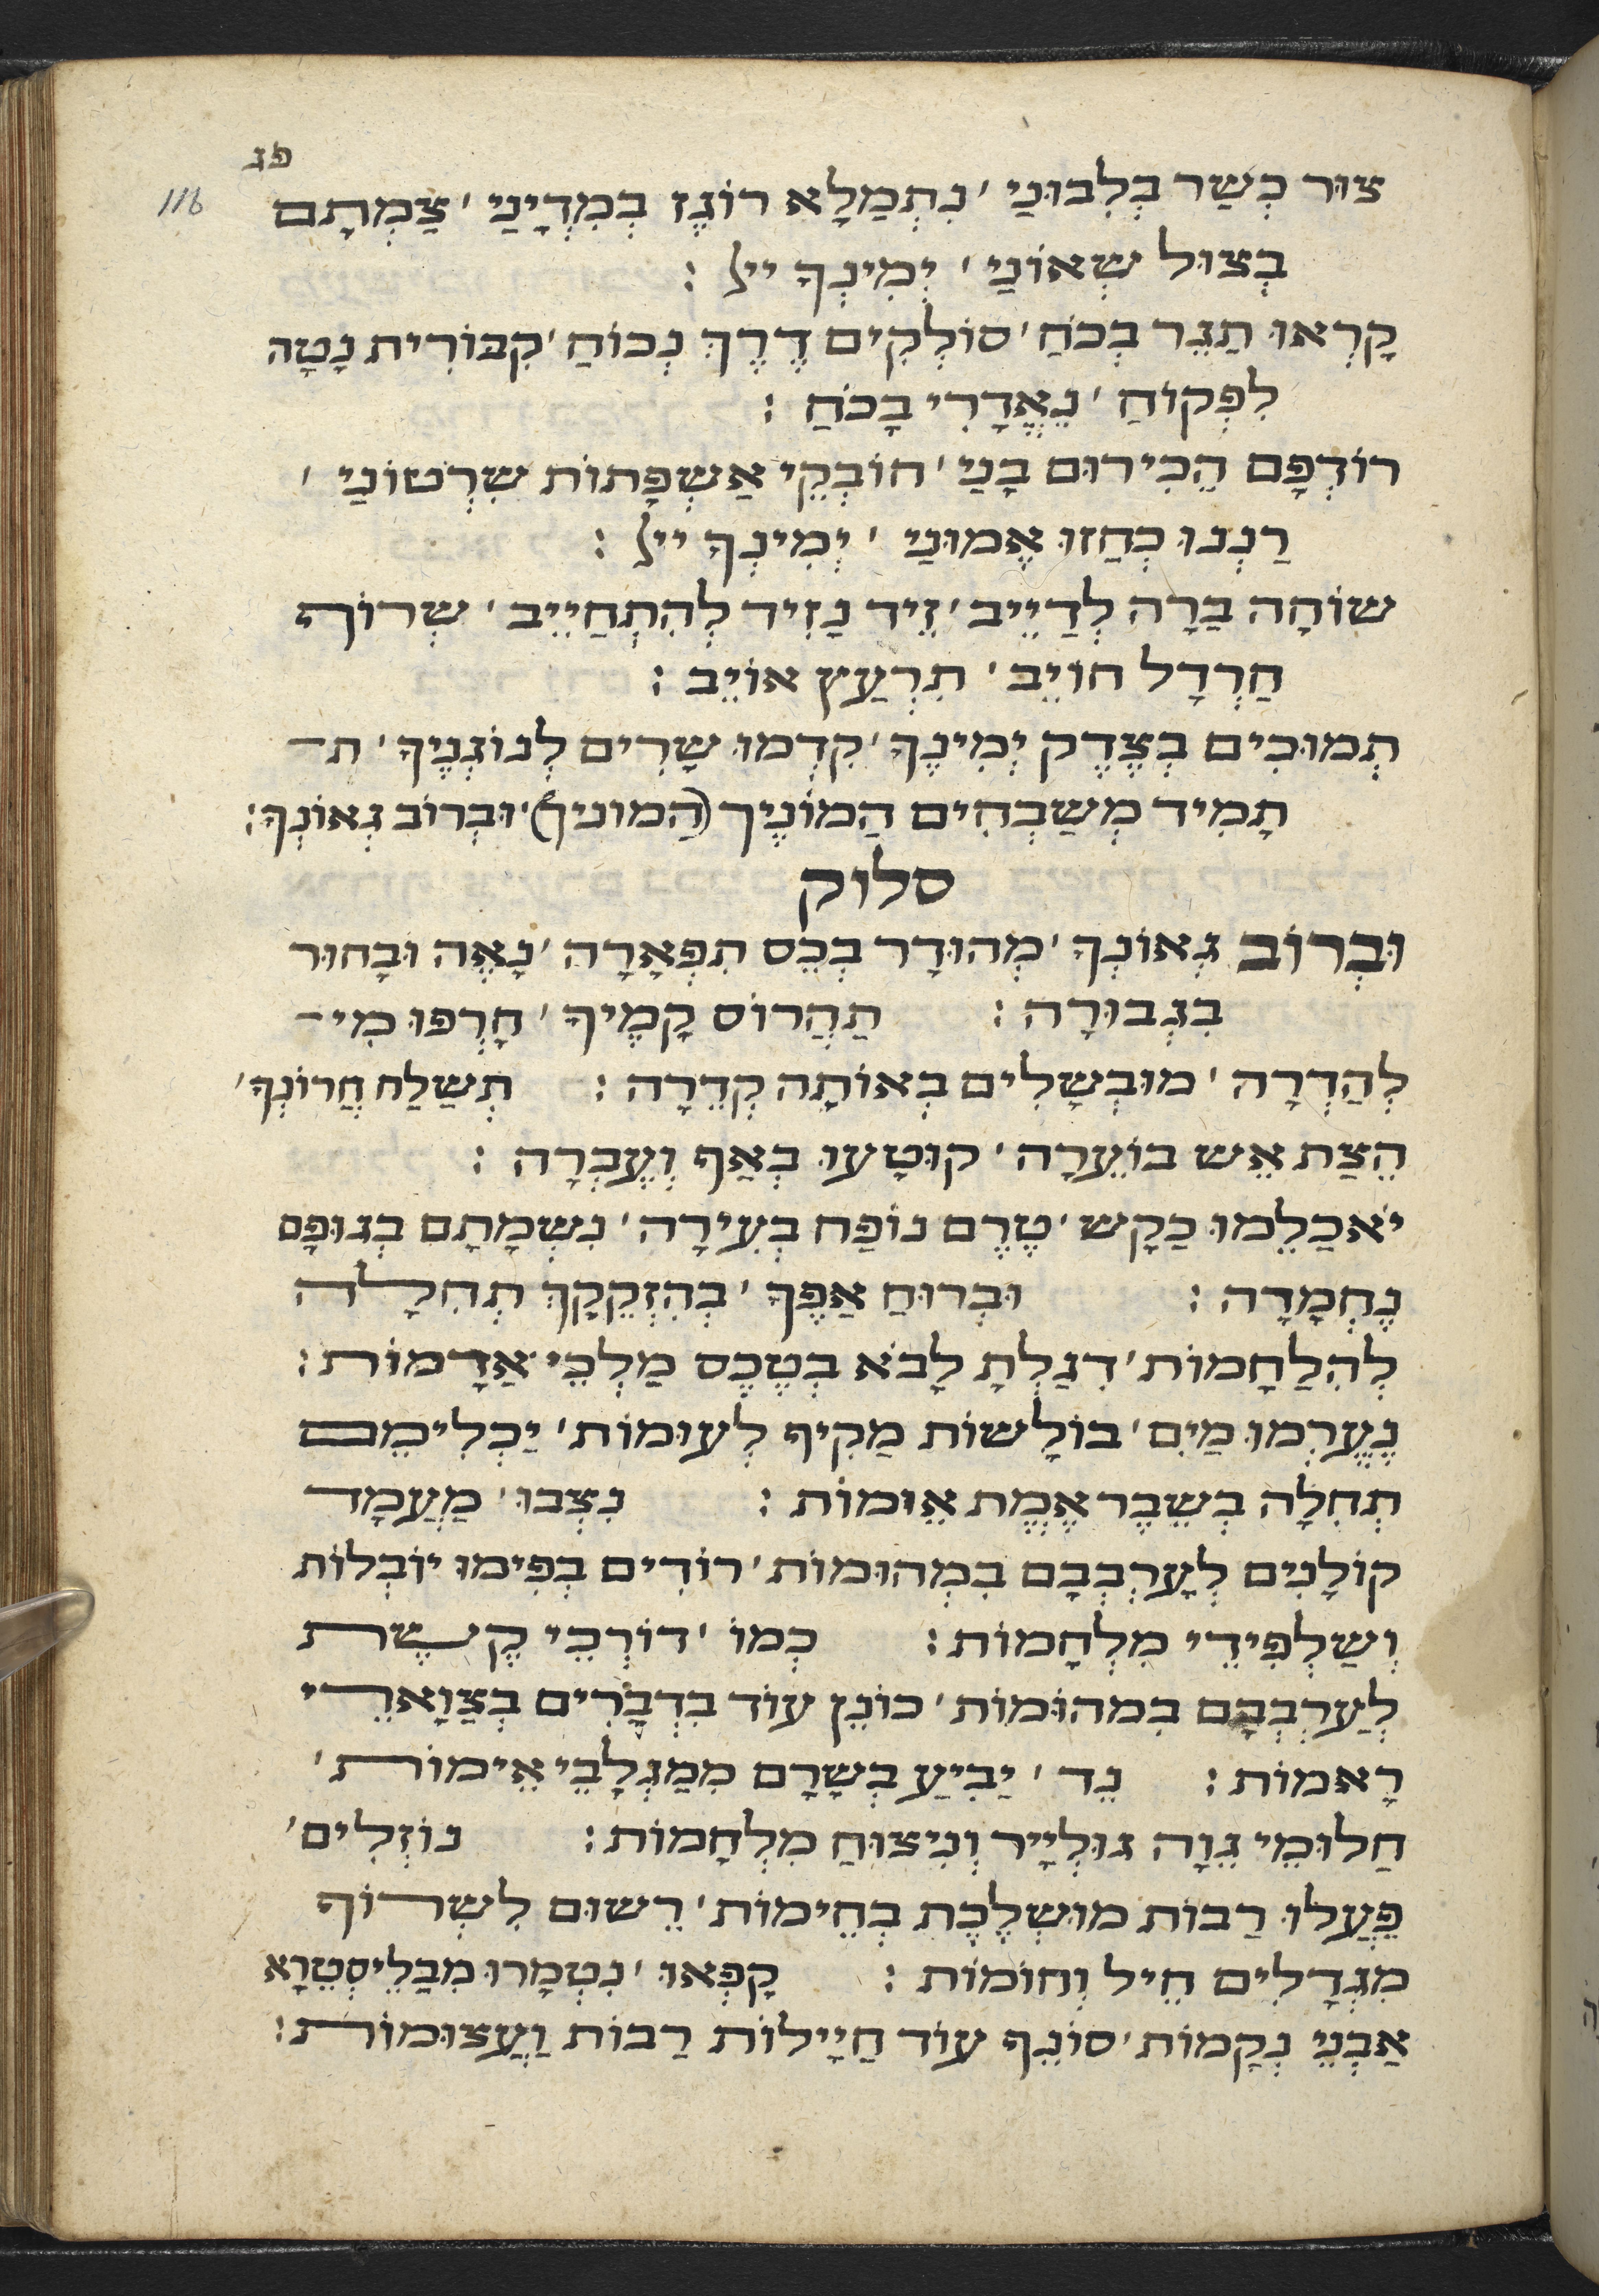 פג
116
צוּר כְּשַׂר בְּלִבּוּנַי ׳ נִתְמַלָא רוֹגֶז בְּמִדְיָנַי ׳ צַמְתָם
בְּצוּל שְׁאוֹנַי ׳ יְמִינְךָ ייל :
קָרְאוּ תַגֵר בְּכֹחַ ׳ סוֹלְקִים דֶרֶךְ נְכוֹחַ ׳ קִבּוֹרִית נָטָה
לִפְקוֹחַ ׳ נֶאֱדָרִי בָכֹּחַ :
רוֹדְפָם הֵכִירוּם בָּנַי ׳ חוֹבְקֵי אַשְׁפָּתוֹת שִׁרְטוֹנַי ׳
רַנְנוּ כְּחַזוּ אֱמוּנַי ׳ יְמִינְךָ ייל :
שׁוּחָה בָּרָה לְדַיֵיב ׳ זֵיד נָזִיד לְהִתְחַיֵיב ׳ שְׂרוֹף
חַרְדָל חוֹיֵב ׳ תִרְעַץ אוֹיֵב :
תְמוּכִים בְּצֶדֶק יְמִינֶךָ ׳ קִדְמוּ שָׁרִים לְנוֹגְנֶיךָ ׳ ת־
תָמִיד מְשַׁבְּחִים הֲמוֹנֶיךָ (הֲמוֹנֶיךָ) ׳ וּבְרוֹב גְאוֹנְךָ :
סלוק
וּבְרוֹב גְאוֹנְךָ ׳ מְהוּדָר בְּכֵס תִפְאָרָה ׳ נָאֶה וּבָחוּר
בִּגְבוּרָה : תַהֲרוֹס קָמֶיךָ ׳ חָרְפוּ מִי־
לְהַדְרָה ׳ מוּבְשָׁלִים בְּאוֹתָהּ קְדֵרָה : תְשַׁלַח חֲרוֹנְךָ ׳
הֵצַת אֵשׁ בּוֹעֵרָה ׳ קוּטָעוּ בְּאַף וְעֶבְרָה :
יֹאכְלֵמוֹ כַּקַשׁ ׳ טֶרֶם נוֹפַח בְּעִירָה ׳ נִשְׁמָתָם בְּגוּפָם
נֶחְמָדָה : וּבְרוּחַ אַפֶּךָ ׳ בְּהִזְקֵקָךְ תְחִלָה
לְהִלַחָמוֹת ׳ דִגַלְתָ לָבֹא בְּטֶכֶס מַלְכֵי אֲדָמוֹת :
נֶעֶרְמוּ מַיִם ׳ בּוֹלָשׁוֹת מַקִיף לְעוּמוֹת ׳ יַכְלִימֵם
תְחִלָה בְּשֵׁבֶר אֱמֶת אֵימוֹת : נִצְבוּ ׳ מַעֲמָד
קוֹלָנִים לְעָרְבְּבָם בִּמְהוּמוֹת ׳ רוֹדִים בְּפִימוֹ יוֹבְלוֹת
וְשַׁלְפִידֵי מִלְחָמוֹת : כְּמוֹ ׳ דוֹרְכֵי קֶשֶׁת
לְעַרְבְּבָם בִּמְהוּמוֹת ׳ כּוֹנֵן עוֹד בִּדְבָרִים בְּצַוָארֵי
רָאמוֹת : נֵד ׳ יַבִּיעַ בְּשָׂרָם מִמַגְלְבֵי אֵימוֹת ׳
חֲלוּמֵי גֵוָה גוּלְיָיר וְנִיצוּחַ מִלְחָמוֹת : נוֹזְלִים ׳
פָּעֲלוּ רַבּוֹת מוּשְׁלֶכֶת בְּחֵימוֹת ׳ רְשׁוּם לִשְׂרוֹף
מִגְדָלִים חֵיל וְחוֹמוֹת : קָפְאוּ ׳ נִטְמָרוּ מִבַּלֵיסְטְרָא
אַבְנֵי נְקָמוֹת ׳ סוֹנֵף עוֹד חַיָילוֹת רַבּוֹת וַעֲצוּמוֹת :